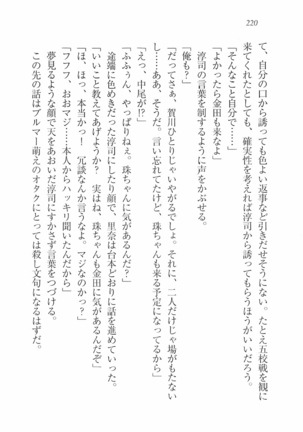 220
て、自分の口から誘っても色よい返事など引きだせそうにない。たとえ五校戦を観に
来てくれたとしても、確実性を考えれば淳司から誘ってもらうほうがいいだろう。
「そんなこと自分で……」
「よかったら金田も来なよ」
淳司の言葉を制するように声をかぶせる。
「俺も?」
「だってさぁ、賀川ひとりじゃいやがるでしょ。それに、二人だけじゃ場がもたない
し……ああ、そうだ。言い忘れてたけど、珠ちゃんも来る予定になってるから」
「えっ、中尾が!?」
「ふふぅん、やっぱりねぇ。珠ちゃんに気があるんだ?」
途端に色めきだった淳司にしたり顔で、里奈は台本どおりに話を進めていった。
「いいこと教えてあげようか? 実はね、珠ちゃんも金田に気があるんだぞ」
「ほ、ほっ、本当かっ! 冗談なんか言うなよ。マジなのかっ?」
「フフフ、おおマジ……本人からハッキリ聞いたんだから」
夢見るような顔で天をあおいだ淳司にすかさず言葉をつづける。
この先の話はブルマー萌えのオタクにとっては殺し文句になるはずだ。